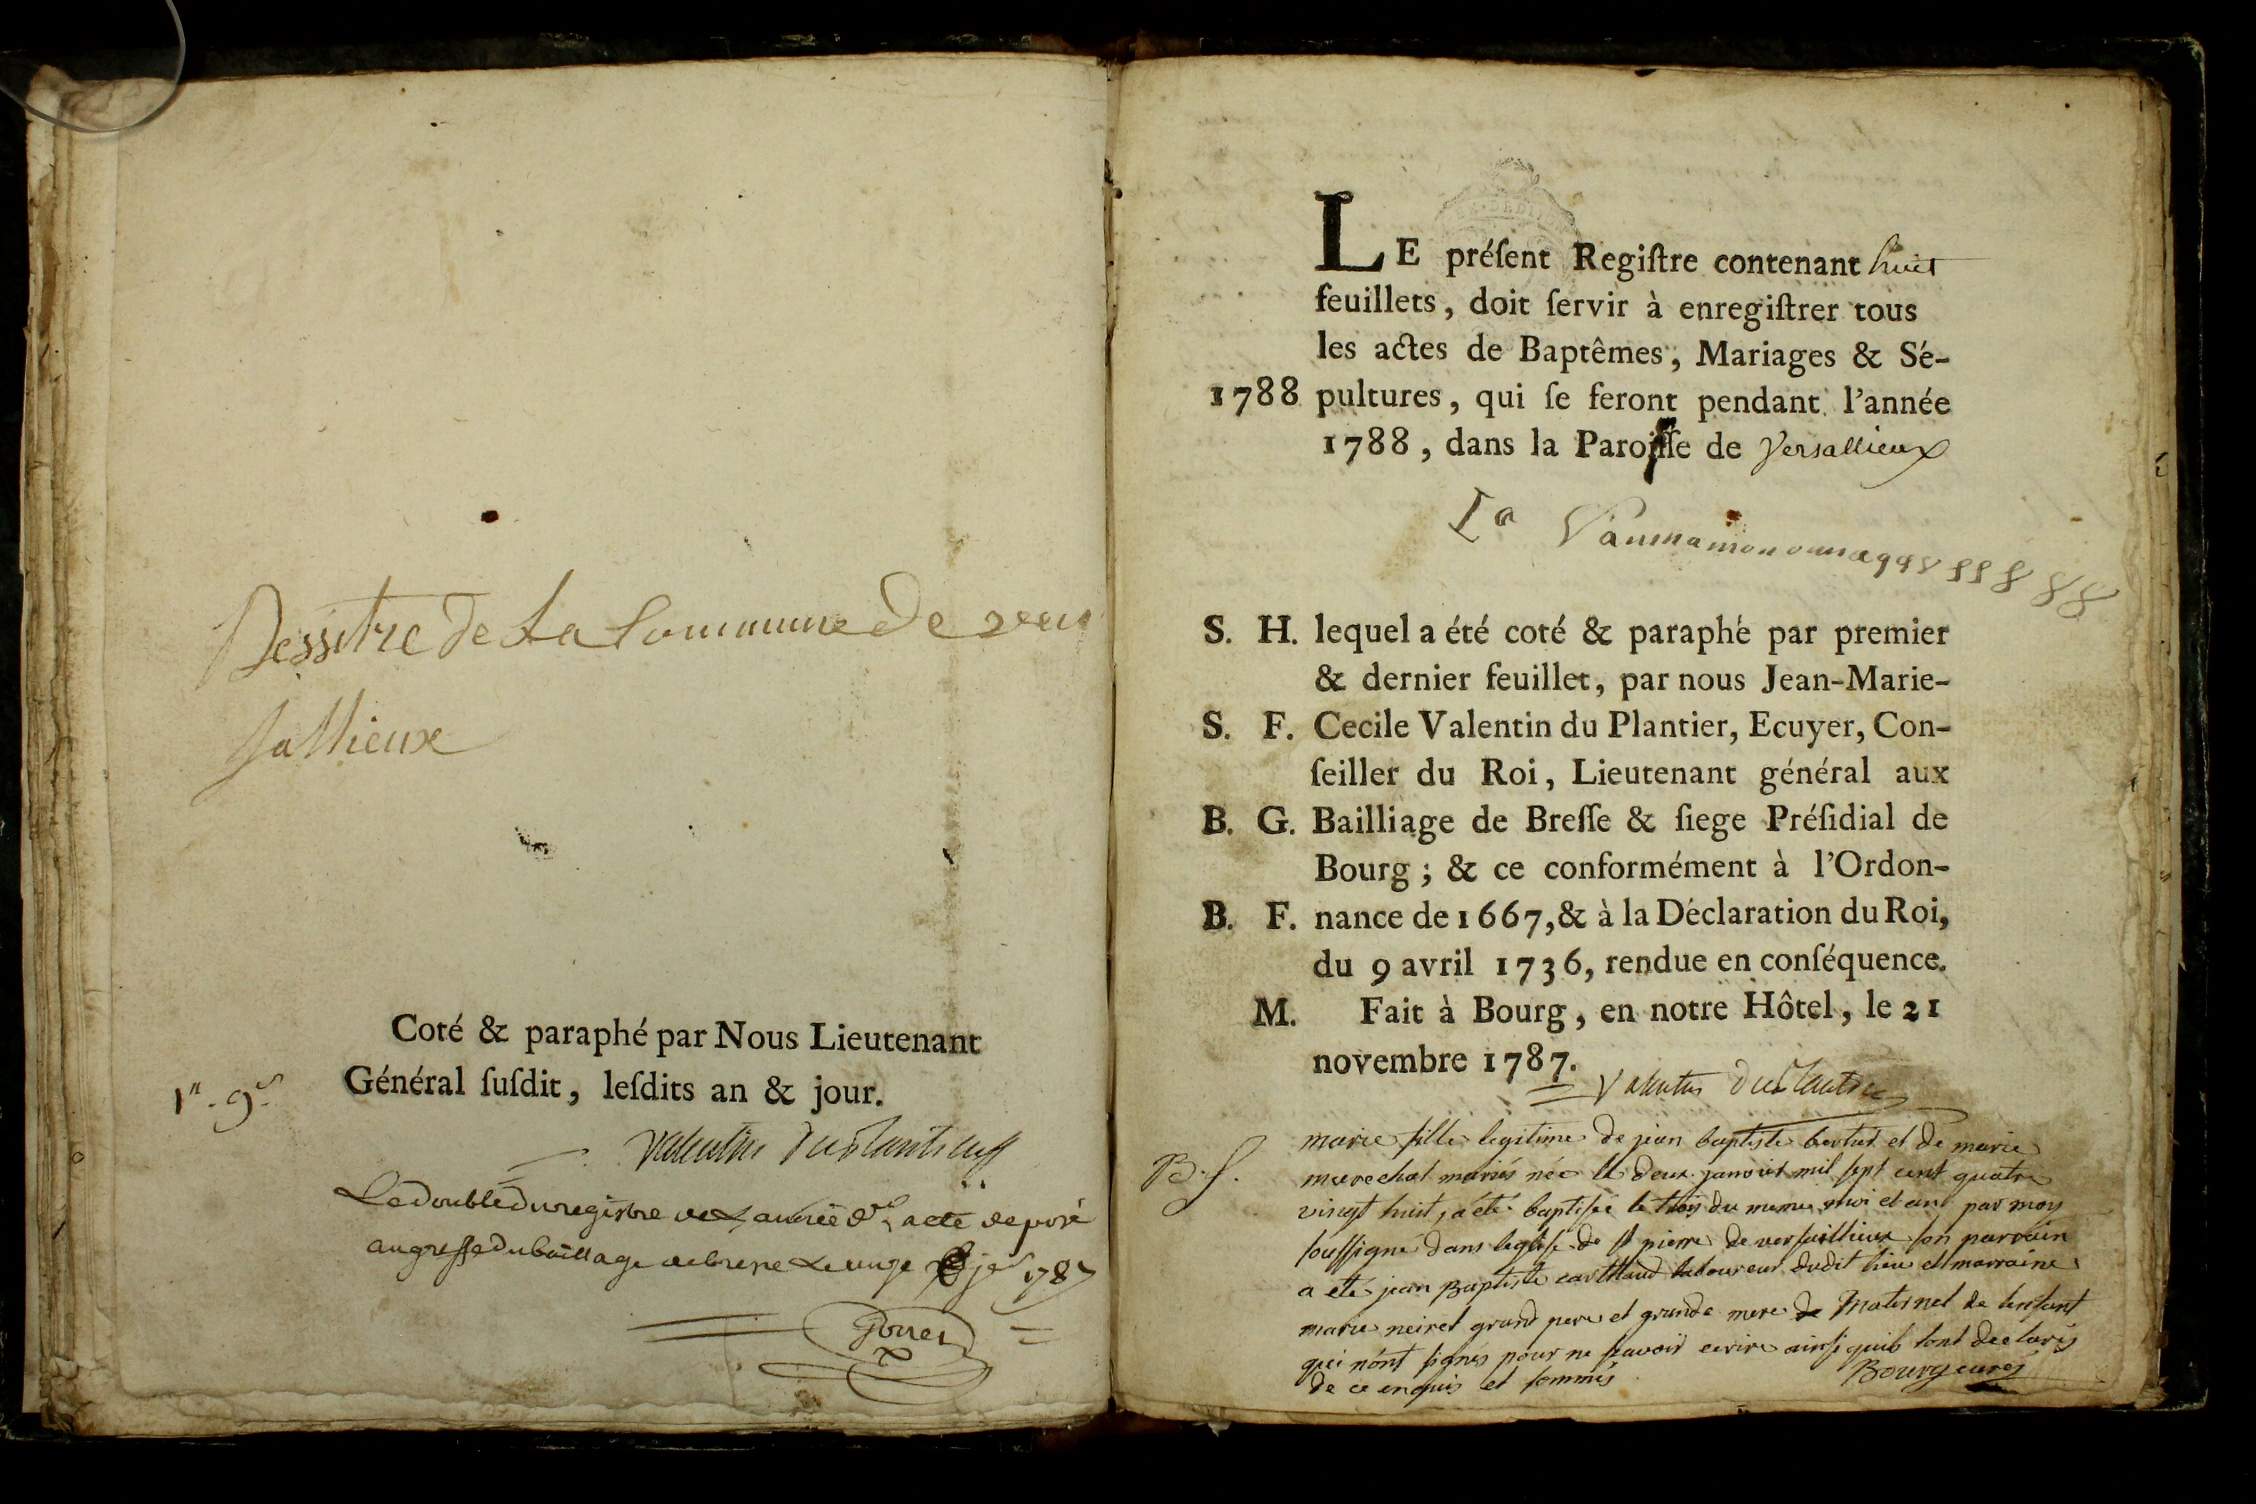 Ressitre de La Commune de ver
sallieux
Coté & paraphé par Nous Lieutenant
1er. 9e.
Général ſuſdit, leſdits an & jour.
Valentin Duplantier
Le double du registre de l'année dre, acté deposé
au greffe du bailliage de bresse le vingt jer 1787
LE préſent Regiſtre contenant huit
feuillets, doit ſervir à enregiſtrer tous
les actes de Baptêmes, Mariages & Sé-
1788 pultures, qui ſe feront pendant l'année
1788, dans la Paroiſſe de Versallieux
S. H. lequel a été coté & paraphé par premier
& dernier feuillet, par nous Jean-Marie-
S. F. Cecile Valentin du Plantier, Ecuyer, Con-
ſeiller du Roi, Lieutenant général aux
B. G. Bailliage de Breſſe & ſiege Préſidial de
Bourg ; & ce conformément à l'Ordon-
B. F. nance de 1667, & à la Déclaration du Roi,
du 9 avril 1736, rendue en conſéquence.
M. Fait à Bourg, en notre Hôtel, le 21
novembre 1787.
Valentin Duplantier
marie fille legitime de jean baptiste bertet et de marie
B. f. marechal mariés née le deux janvier mil sept cent quatre
vingt huit, a été baptisée le trois du meme moi et an par moy
soussigné dans leglise de st pierre de versaillieux son parrain
a eté jean Baptiste laboureur dudit lieu et marraine
marie neiret grand pere et grande mere de Maternel de lenfant
qui nont signes pour ne scavoir ecrire ainsi quils sont declarés
de ce enquis et sommés Bourg curé